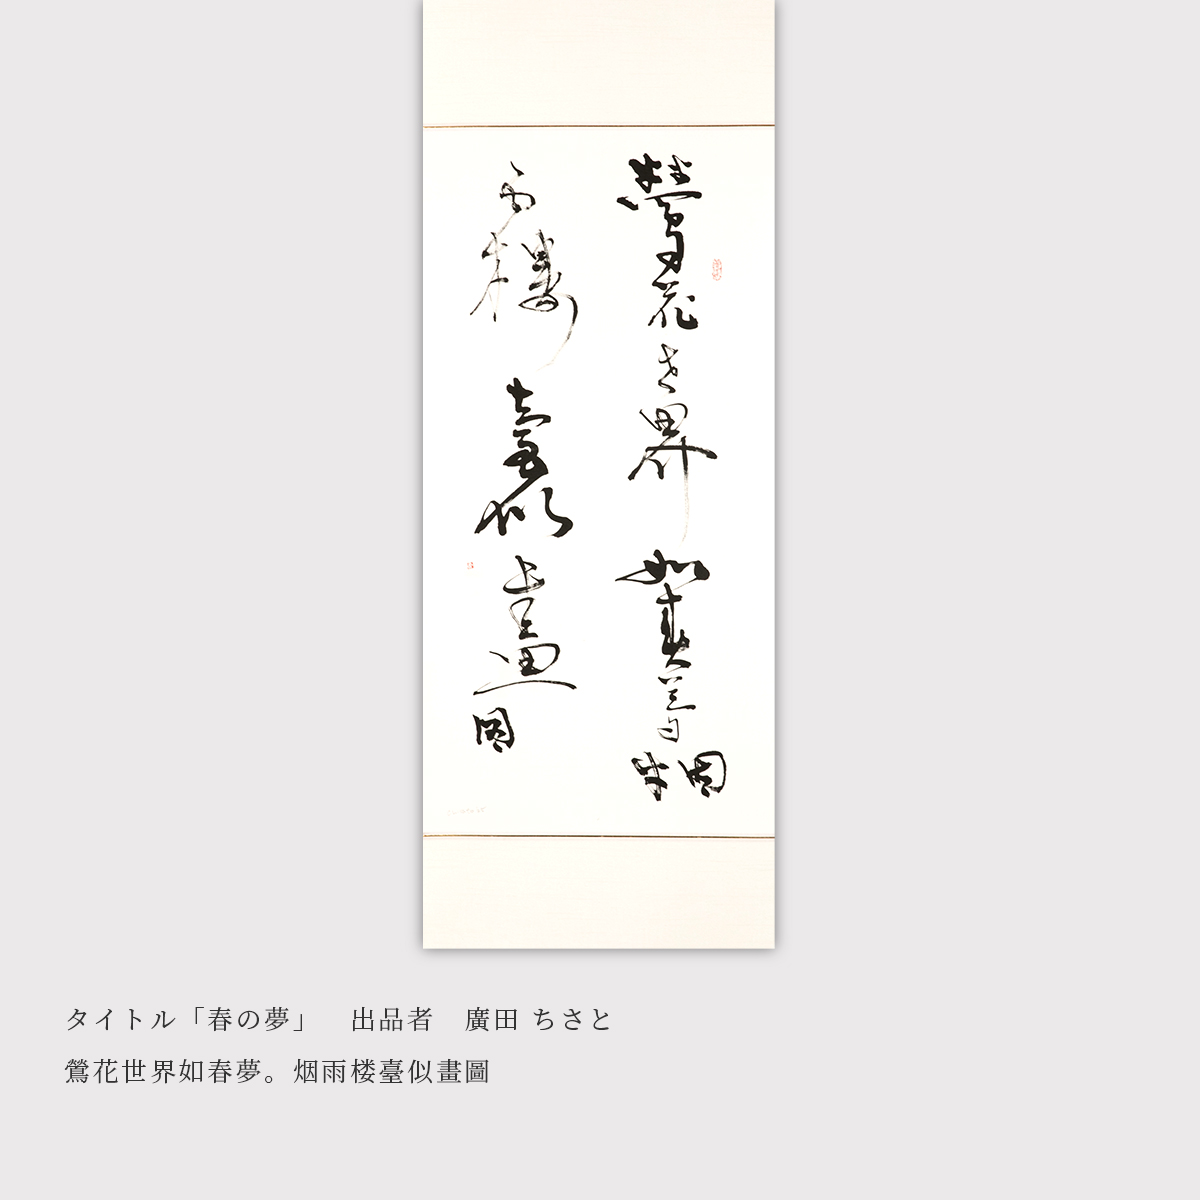 鶯花世界如春夢烟
雨楼臺似畫圖
タイトル「春の夢」　出品者　廣田 ちさと
鶯花世界如春夢。烟雨楼臺似畫圖